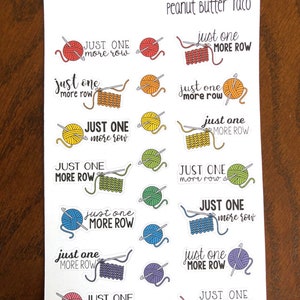 Peanut Butter Taco
JUST ONE
more row
just one
MORE ROW
just one
MORE ROW
JUST ONE
more row
JUST ONE
more row
just one
MORE ROW
JUST ONE
MORE ROW
JUST ONE
more row
just one
MORE ROW
JUST ONE
more row
just one
MORE ROW
just one
MORE ROW
JUST ONE
JUST ONE